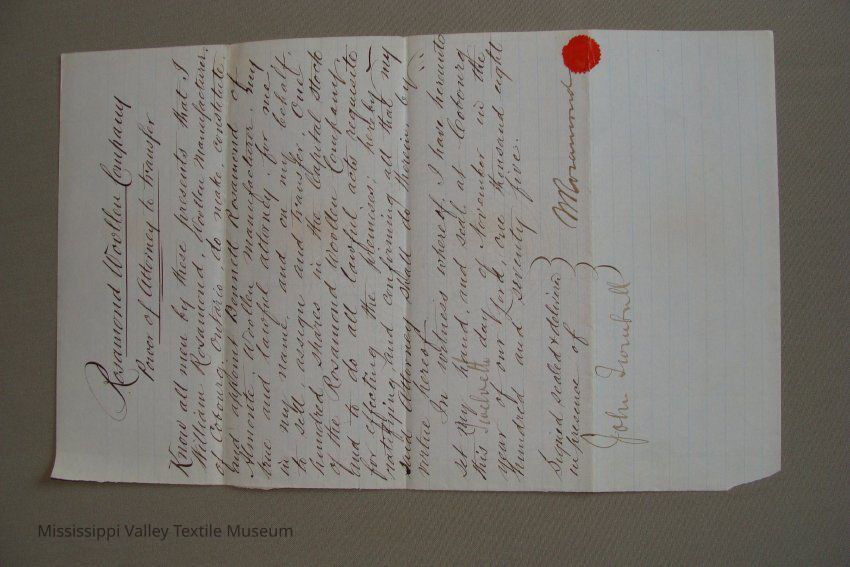 Rosamond Woollen Company
Power of Attorney to Transfer
Know all men by these presents that I
William Rosamond, Woollen Manufacturer,
of Cobourg, Ontario do make constitute
and appoint Bennett Rosamond of
Almonte, Woollen manufacturer my
true and lawful attorney, for me
in my name and on my behalf,
to sell, assign and transfer, One
hundred shares in the Capital Stock
of the Rosamond Woollen Company
And to do all lawful acts requisite
for effecting the premises; hereby
ratifying and confirming all that my
said Attorney shall do therein by
virtue hereof.
In witness whereof, I have hereunto
set my hand, and seal at Cobourg
this Twelveth day of November in the
year of our Lord, one thousand eight
hundred and seventy five.
Signed sealed & delivered
in presence of
WRosamond
John Turnbull
Mississippi Valley Textile Museum